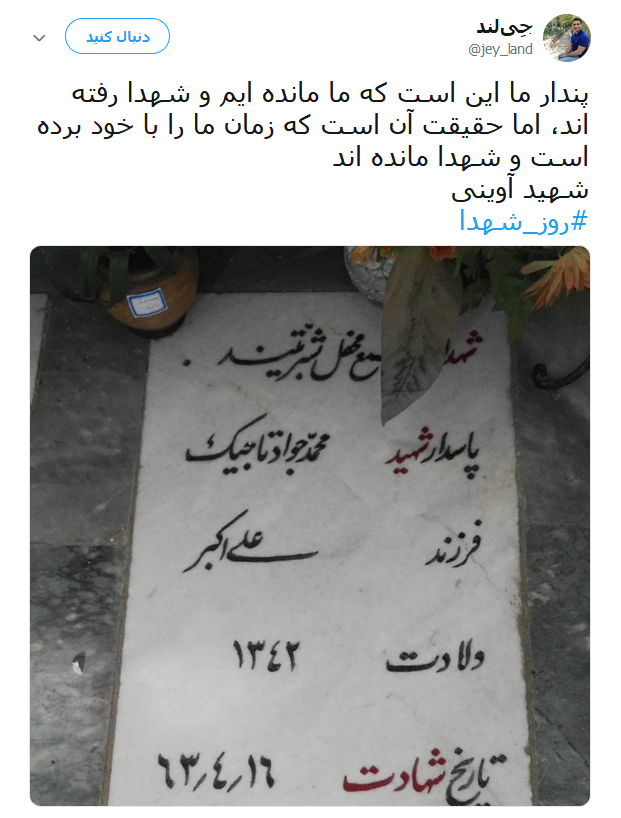 جِی‌لند
@jey_land
دنبال کنید
پندار ما این است که ما مانده ایم و شهدا رفته
اند، اما حقیقت آن است که زمان ما را با خود برده
است و شهدا مانده اند
شهید آوینی
#روز_شهدا
شهدا محفل بشریتند .
پاسدار شهید محمد جواد تاجیک
فرزند علی اکبر
ولادت ۱۳٤۲
تاریخ شهادت ۱٦٫٤٫٦۳